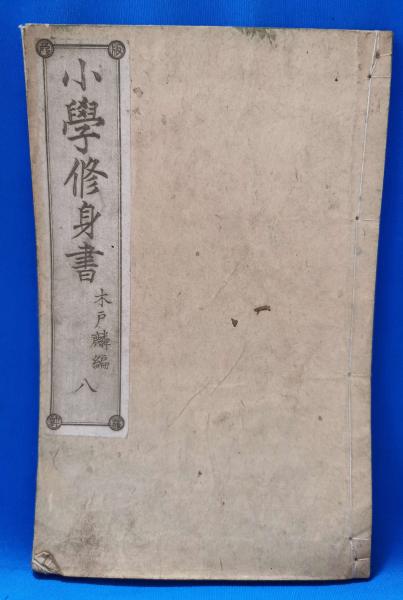 小學修身書
木戸麟編
八